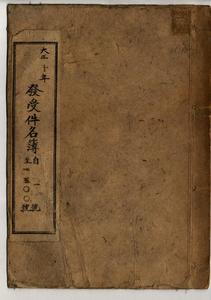 大正十年
發受件名簿
自一號
至一五〇〇號